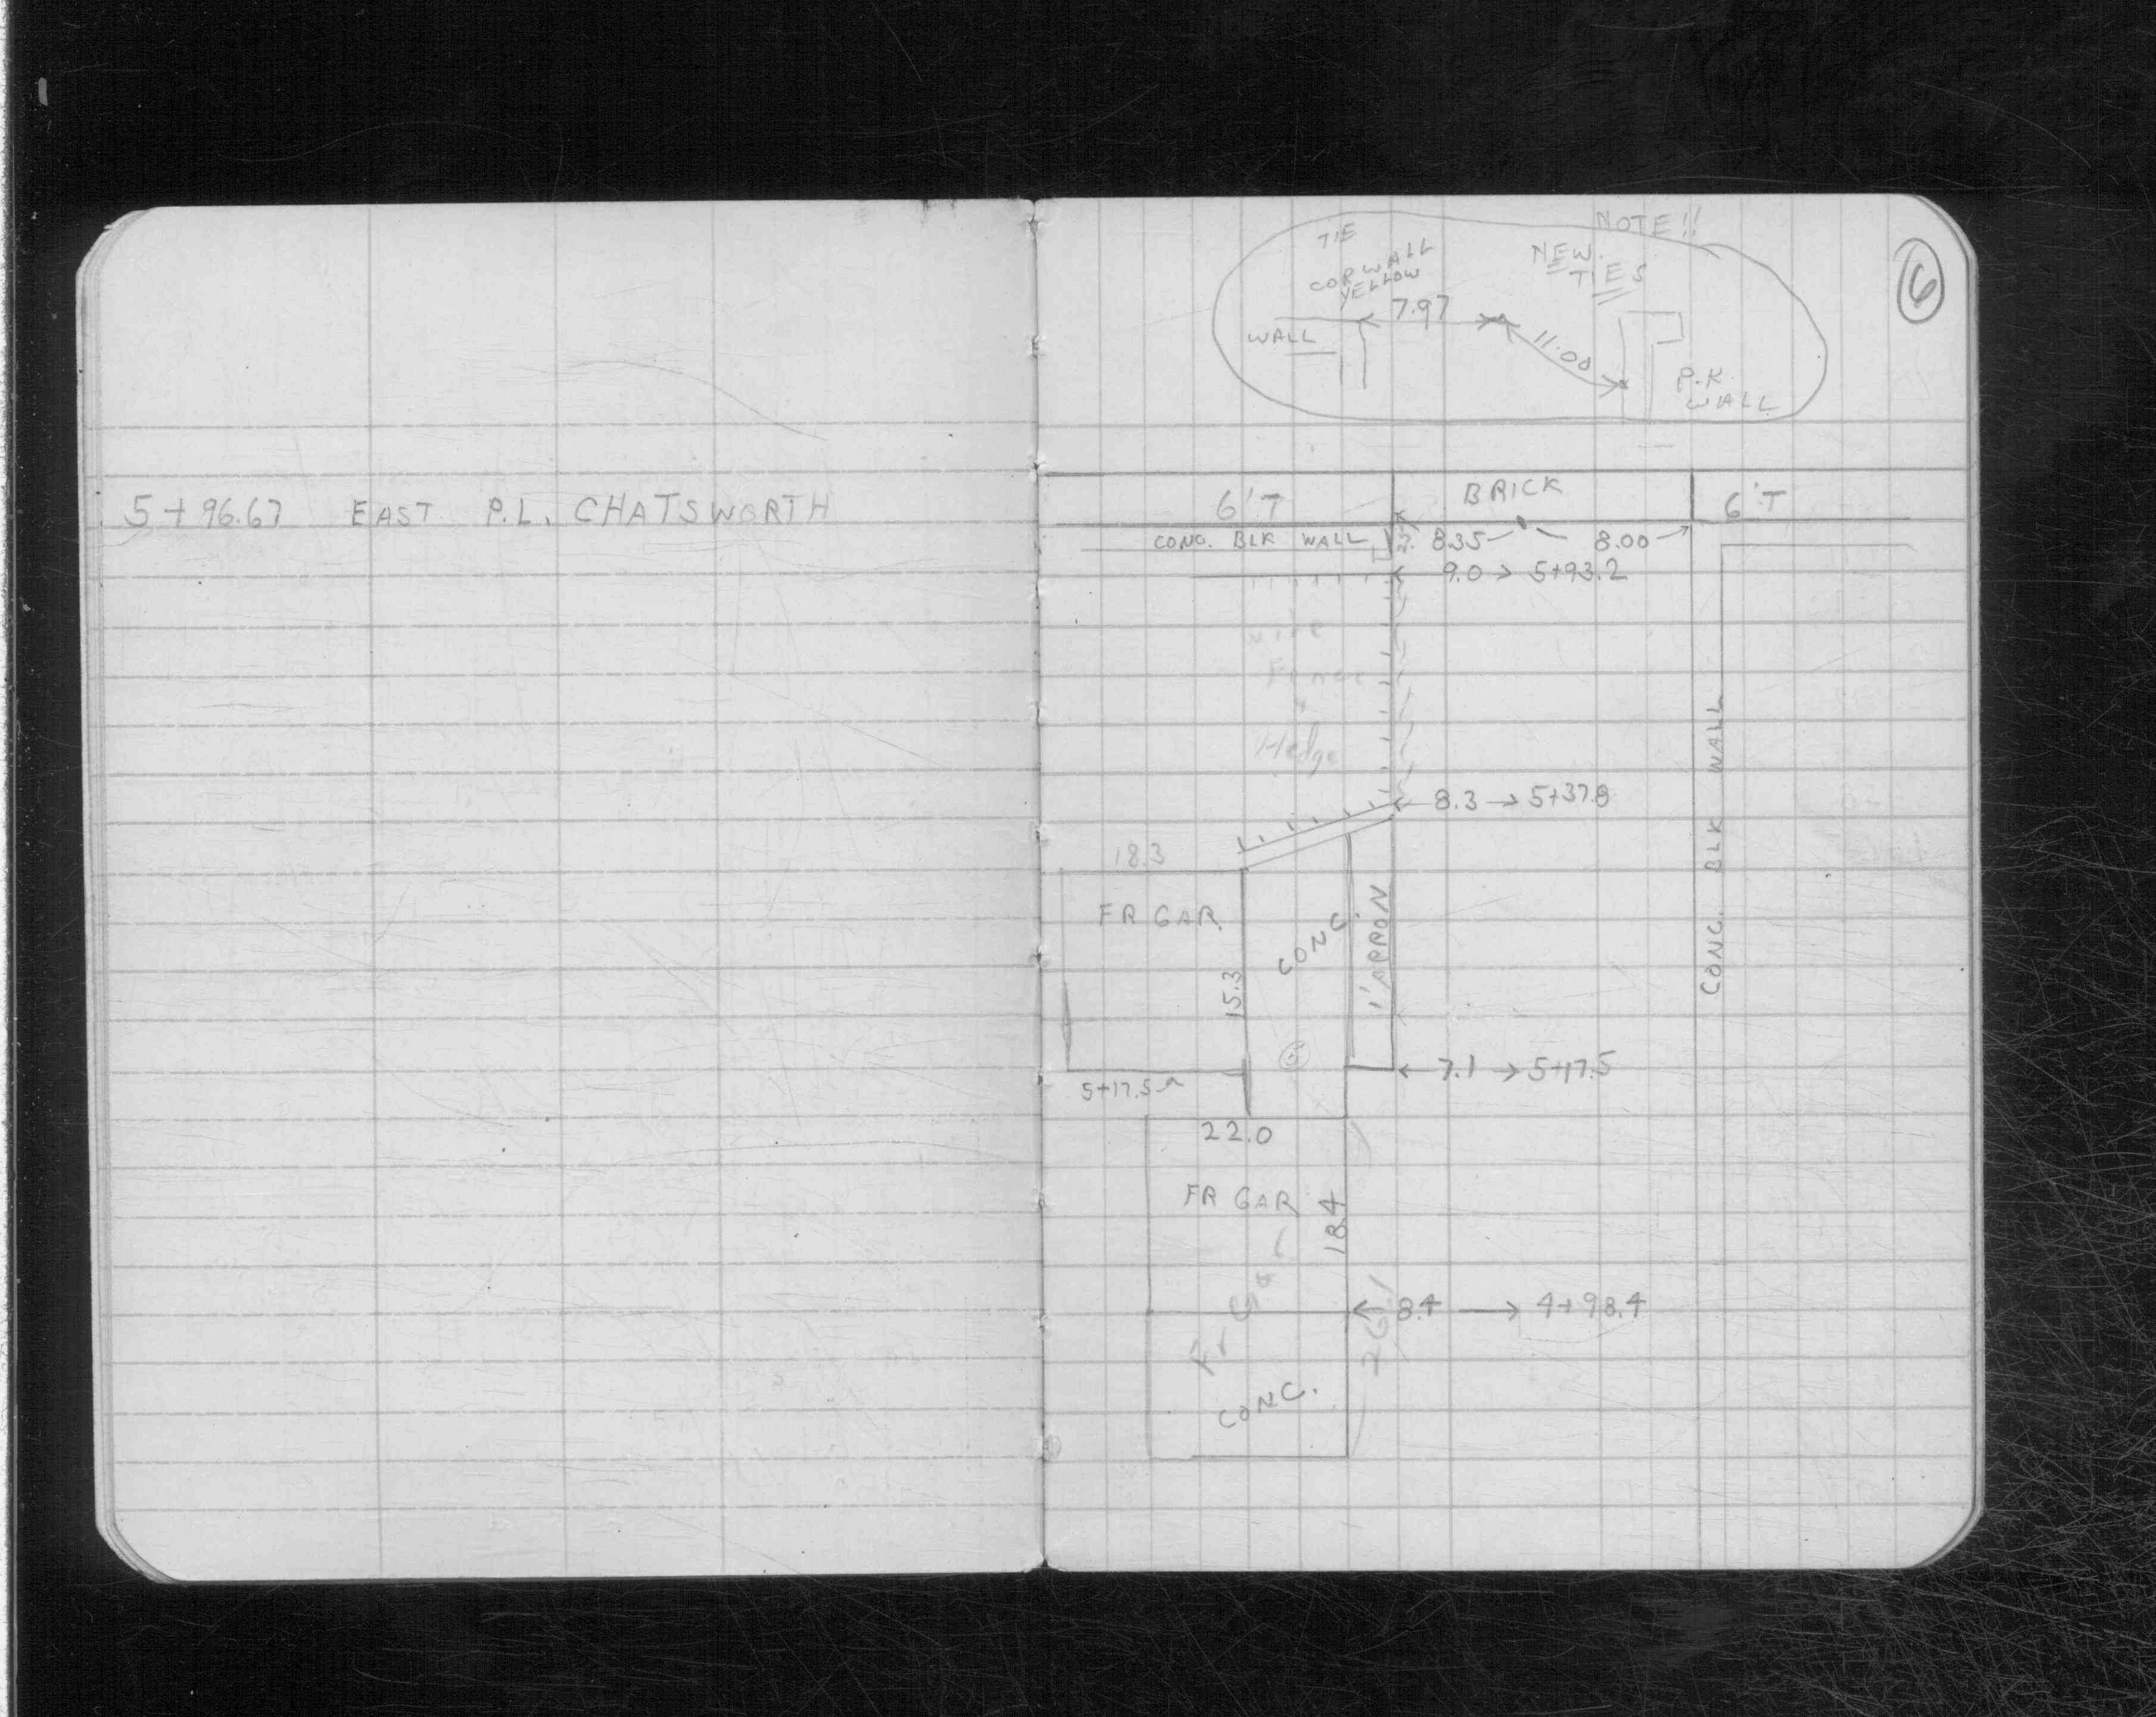 5+96.67 EAST P.L. CHATSWORTH
6
NOTE!!
NEW TIES
TIE
COR WALL
YELLOW
7.97
WALL
11.00
P.K.
WALL
6'T BRICK 6'T
CONC. BLK WALL 8.35 8.00
9.0 5+93.2
wire
Fence
&
Hedge
CONC. BLK WALL
8.3 5+37.8
18.3
FR GAR.
CONC
1' APRON
15.3
5
7.1 5+17.5
5+17.5
22.0
FR GAR
18.4
Fr Gar
26.1
8.4 4+98.4
CONC.